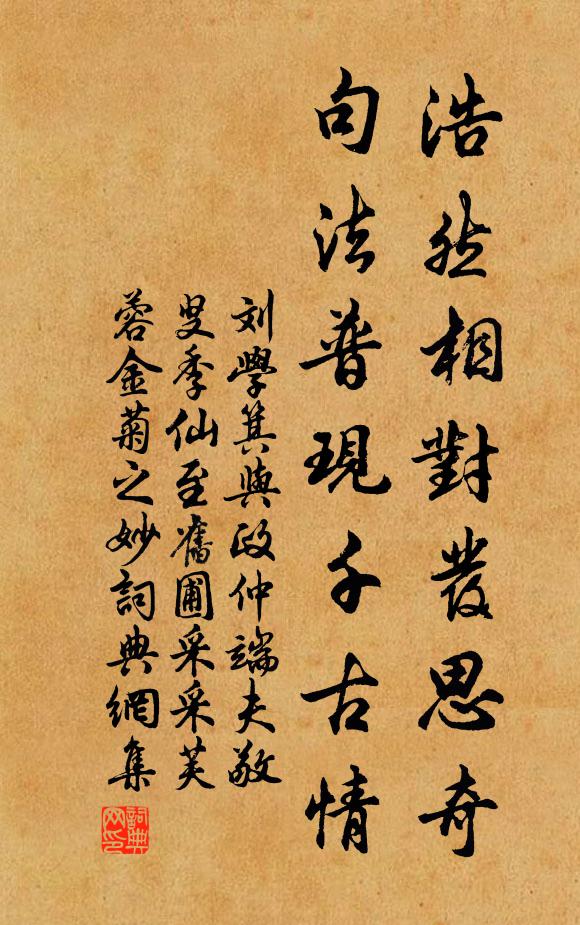 浩然相對發思奇
句法普現千古情
刘學箕與政仲端夫敬
叟季仙至舊圃采采芙
蓉金菊之妙詞典網集
詞典
网印